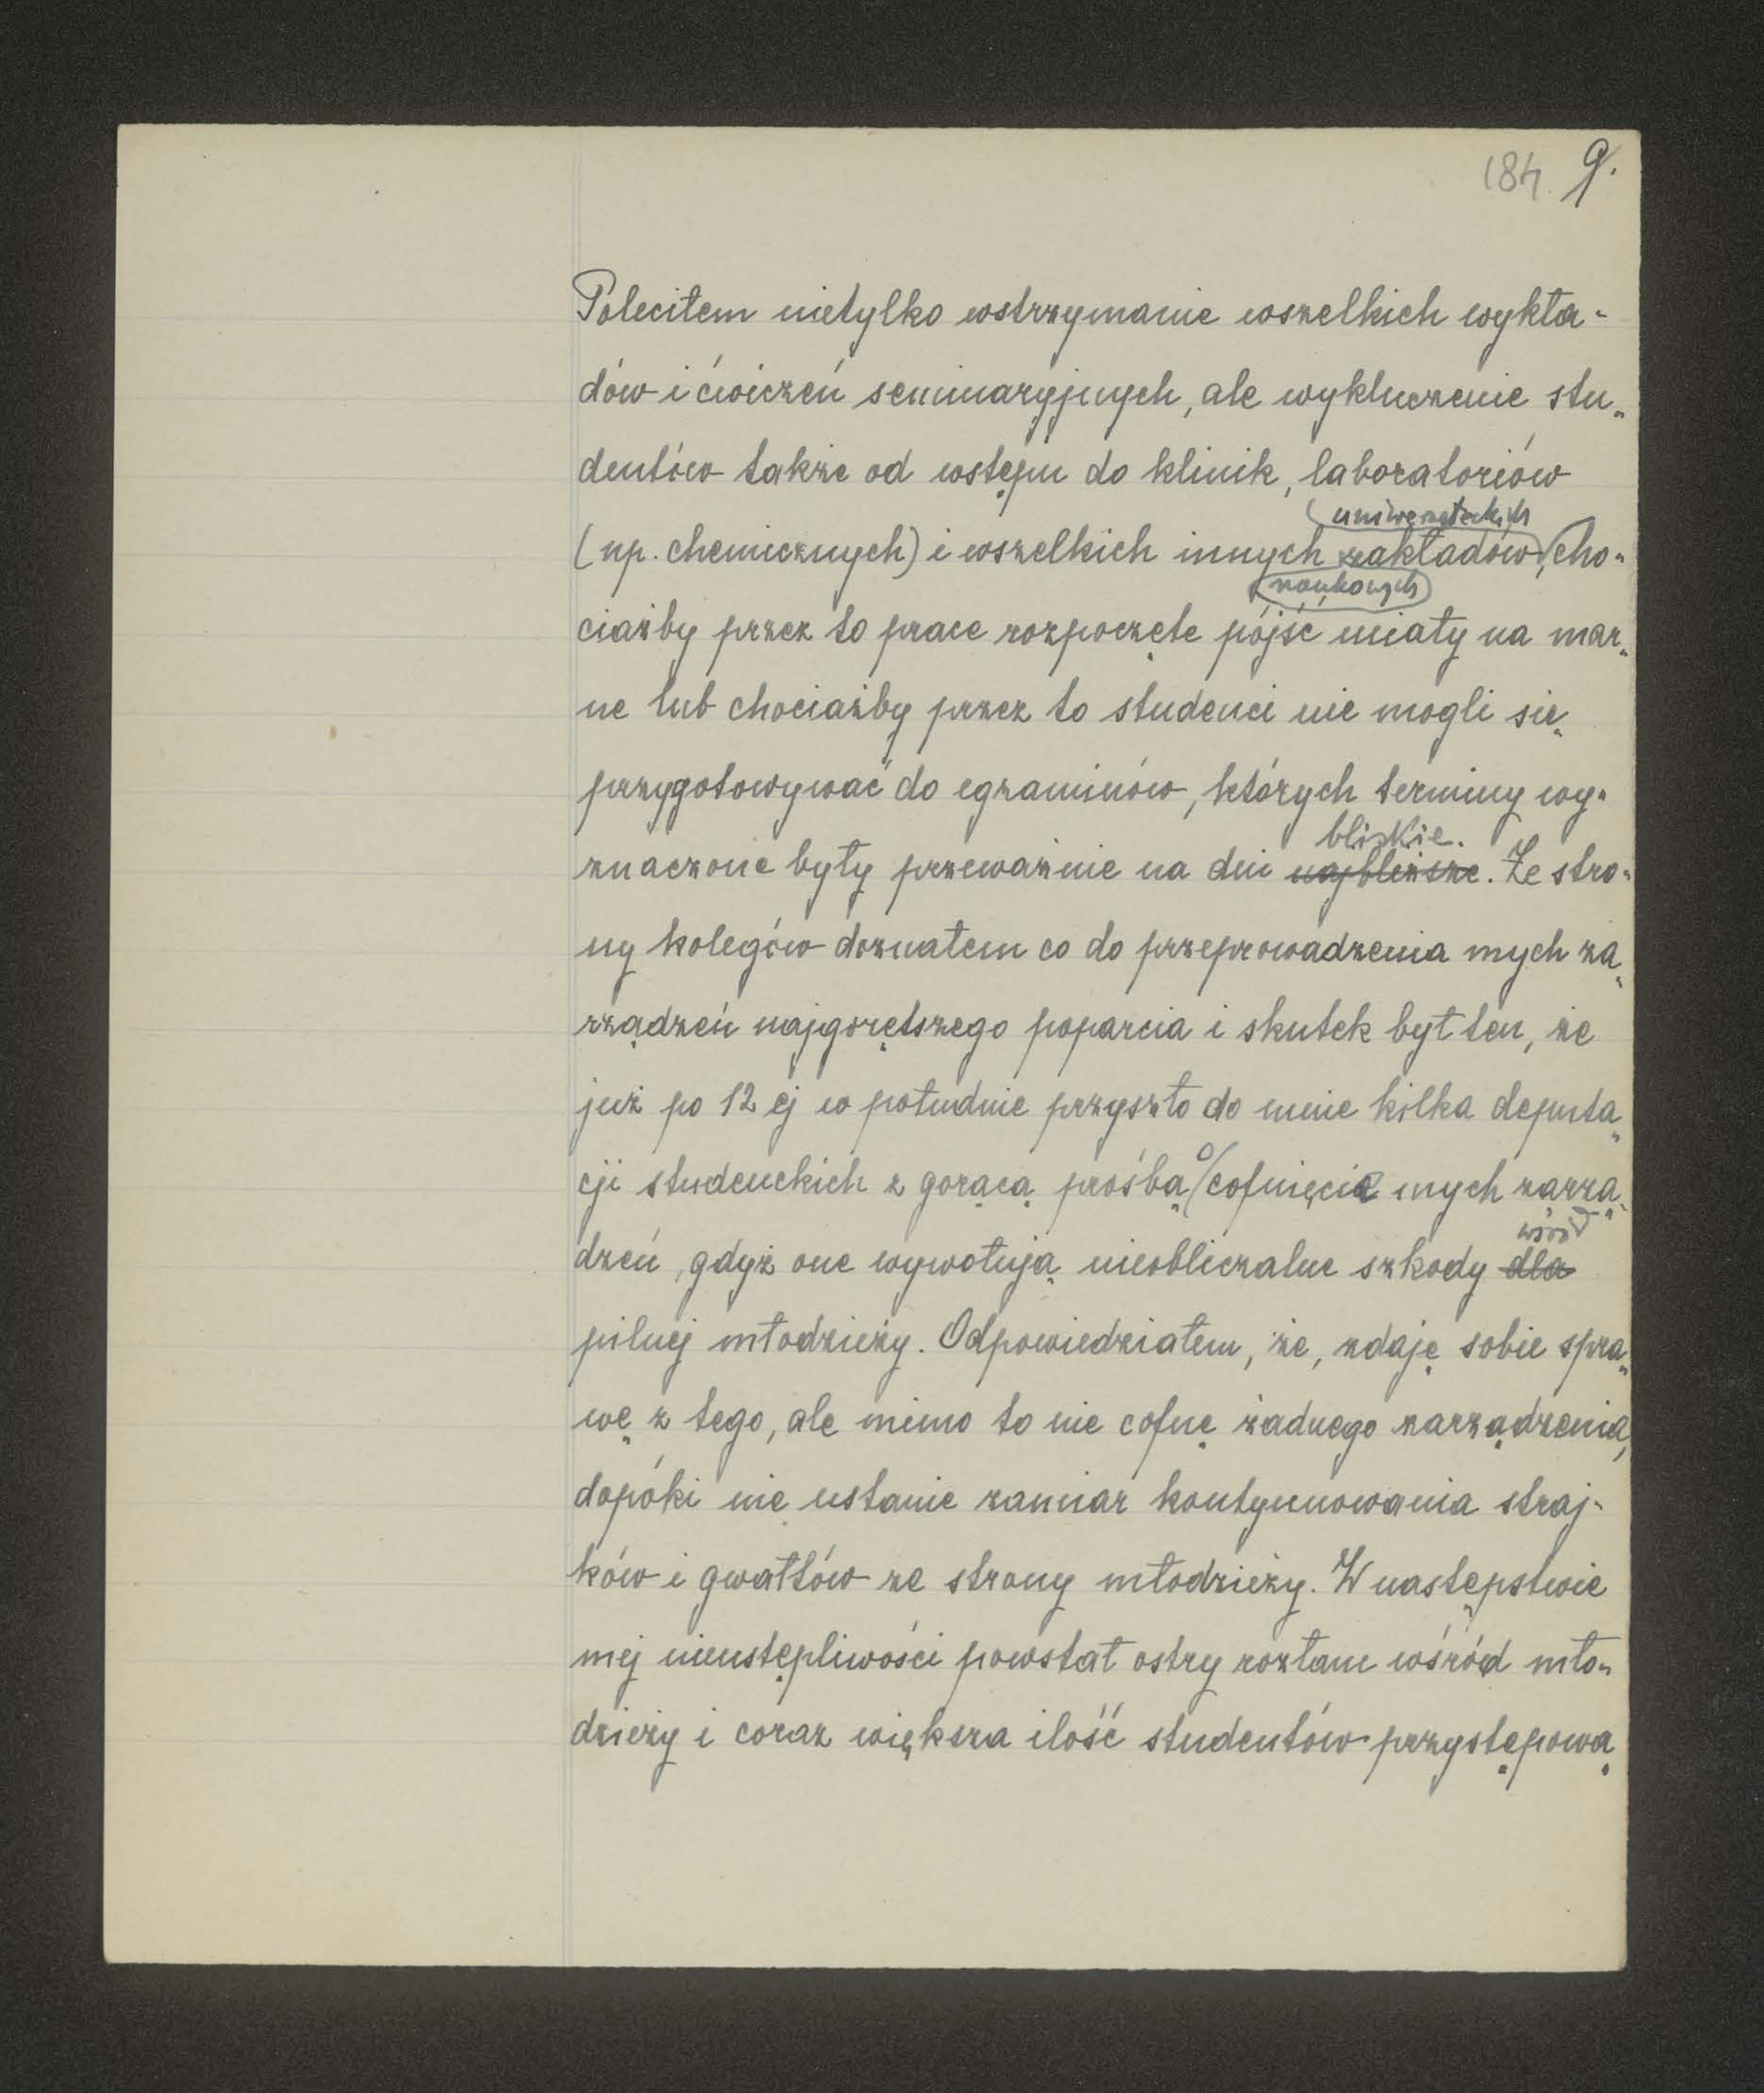 184. 9.
Poleciłem nietylko wstrzymanie wszelkich wykła-
dów i ćwiczeń seminaryjnych, ale wykluczenie stu-
dentów także od wstępu do klinik, laboratoriów
uniwersyteckich
(np. chemicznych) i wszelkich innych zakładów, cho-
naukowych
ciażby przez to prace rozpoczęte pójść miały na mar-
ne lub chociażby przez to studenci nie mogli się
przygotowywać do egzaminów, których terminy wy-
bliskie.
znaczone były przeważnie na dni najbliższe. Ze stro-
ny kolegów doznałem co do przeprowadzenia mych za-
rządzeń najgorętszego poparcia i skutek był ten, że
już po 12 ej w południe przyszło do mnie kilka deputa-
o
cji studenckich z gorącą prośbą cofnięcie mych zarzą-
wśród
dzeń, gdyż one wywołują nieobliczalne szkody dla
pilnej młodzieży. Odpowiedziałem, że, zdaję sobie spra-
wę z tego, ale mimo to nie cofnę żadnego zarządzenia,
dopóki nie ustanie zamiar kontynuowania straj-
ków i gwałtów ze strony młodzieży. W następstwie
mej nieustępliwości powstał ostry rozłam wśród mło-
dzieży i coraz większa ilość studentów przystępowa-